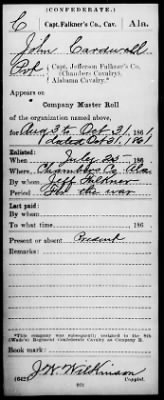 (CONFEDERATE.)
C Capt. Falkner's Co., Cav. Ala.
John Cardwell
Pvt Capt. Jefferson Falkner's Co.
(Chambers Cavalry),
Alabama Cavalry.*
Appears on
Company Muster Roll
of the organization named above,
for Aug 3 to Oct 31, 1861
dated Oct 31, 1861
Enlisted:
When July 25, 186
Where Chambers Co Ala
By whom Jeff Falkner
Period For the war
Last paid:
By whom
To what time 186
Present or absent Present
Remarks:
*This company was subsequently assigned to the 8th
(Wade's) Regiment Confederate Cavalry as Company
Book mark:
J. W. Wilkinson
(642) Copyist.